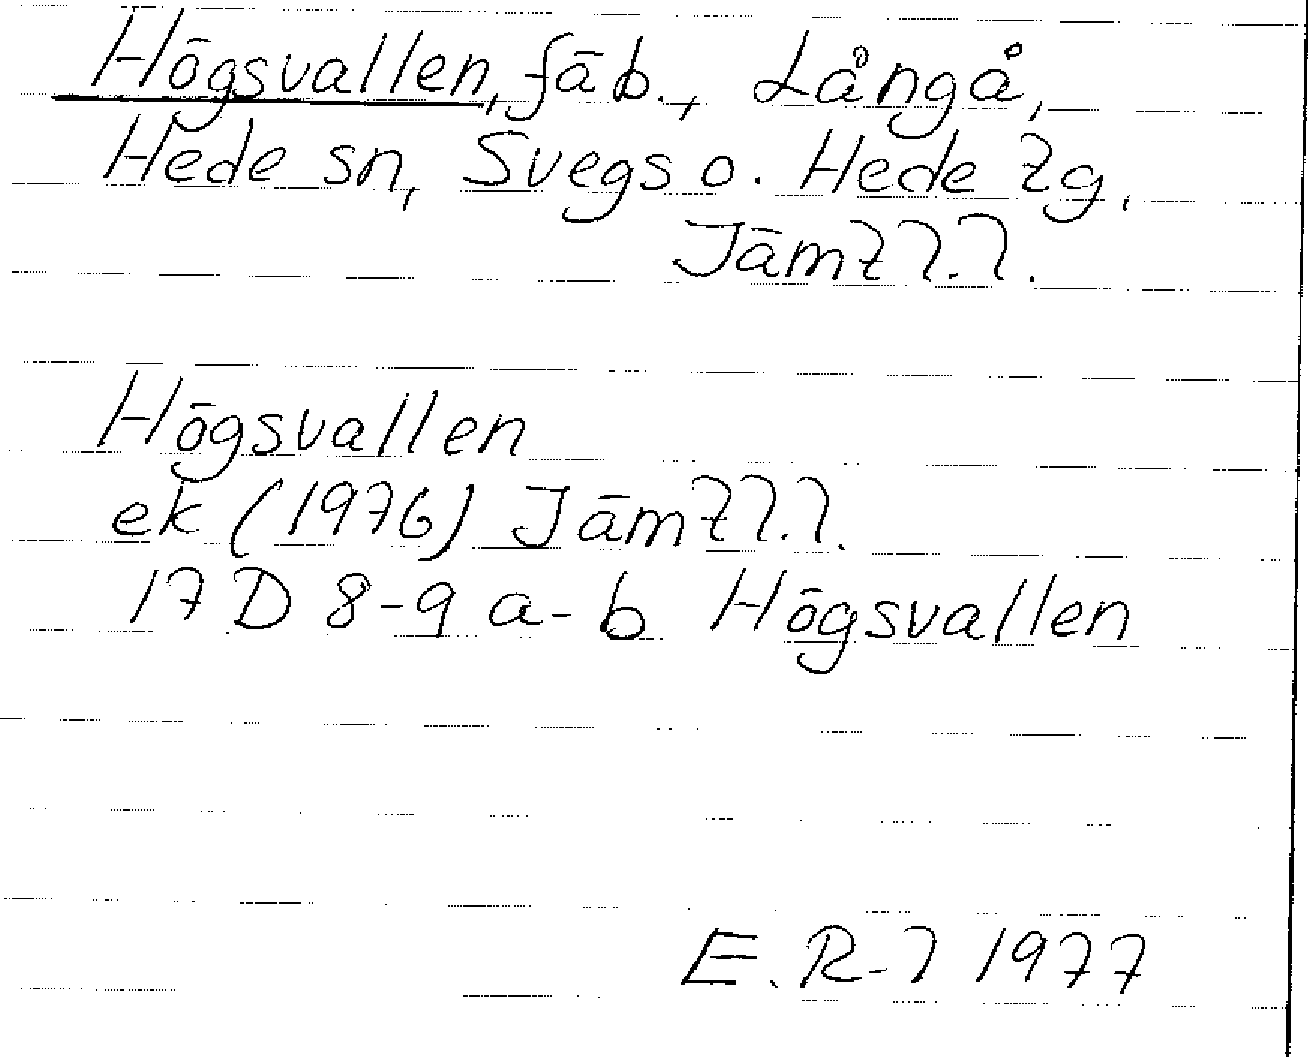 Högsvallen, fäb., Långå,
Hede sn, Svegs o. Hede tg,
Jämtl.l.
Högsvallen
ek (1976) Jämtl.l.
17 D 8-9 a-b Högsvallen
E. R-l 1977